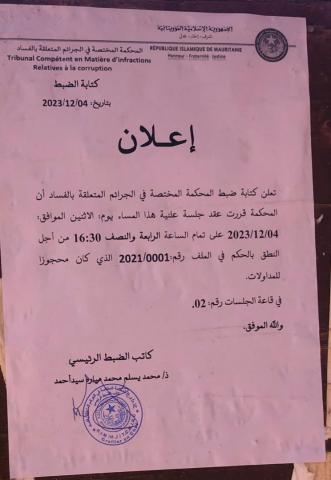 الجمهورية الإسلامية الموريتانية
شرف - إخاء - عدل
RÉPUBLIQUE ISLAMIQUE DE MAURITANIE
Honneur - Fraternité - Justice
المحكمة المختصة في الجرائم المتعلقة بالفساد
Tribunal Compétent en Matière d'infractions
Relatives à la corruption
كتابة الضبط
بتاريخ: 2023/12/04
إعـلان
تعلن كتابة ضبط المحكمة المختصة في الجرائم المتعلقة بالفساد أن
المحكمة قررت عقد جلسة علنية هذا المساء يوم: الاثنين الموافق:
2023/12/04 على تمام الساعة الرابعة والنصف 16:30 من أجل
النطق بالحكم في الملف رقم:2021/0001 الذي كان محجوزا
للمداولات.
في قاعة الجلسات رقم: 02.
والله الموفق.
كاتب الضبط الرئيسي
ذ/ محمد يسلم محمد مبارك سيدأحمد